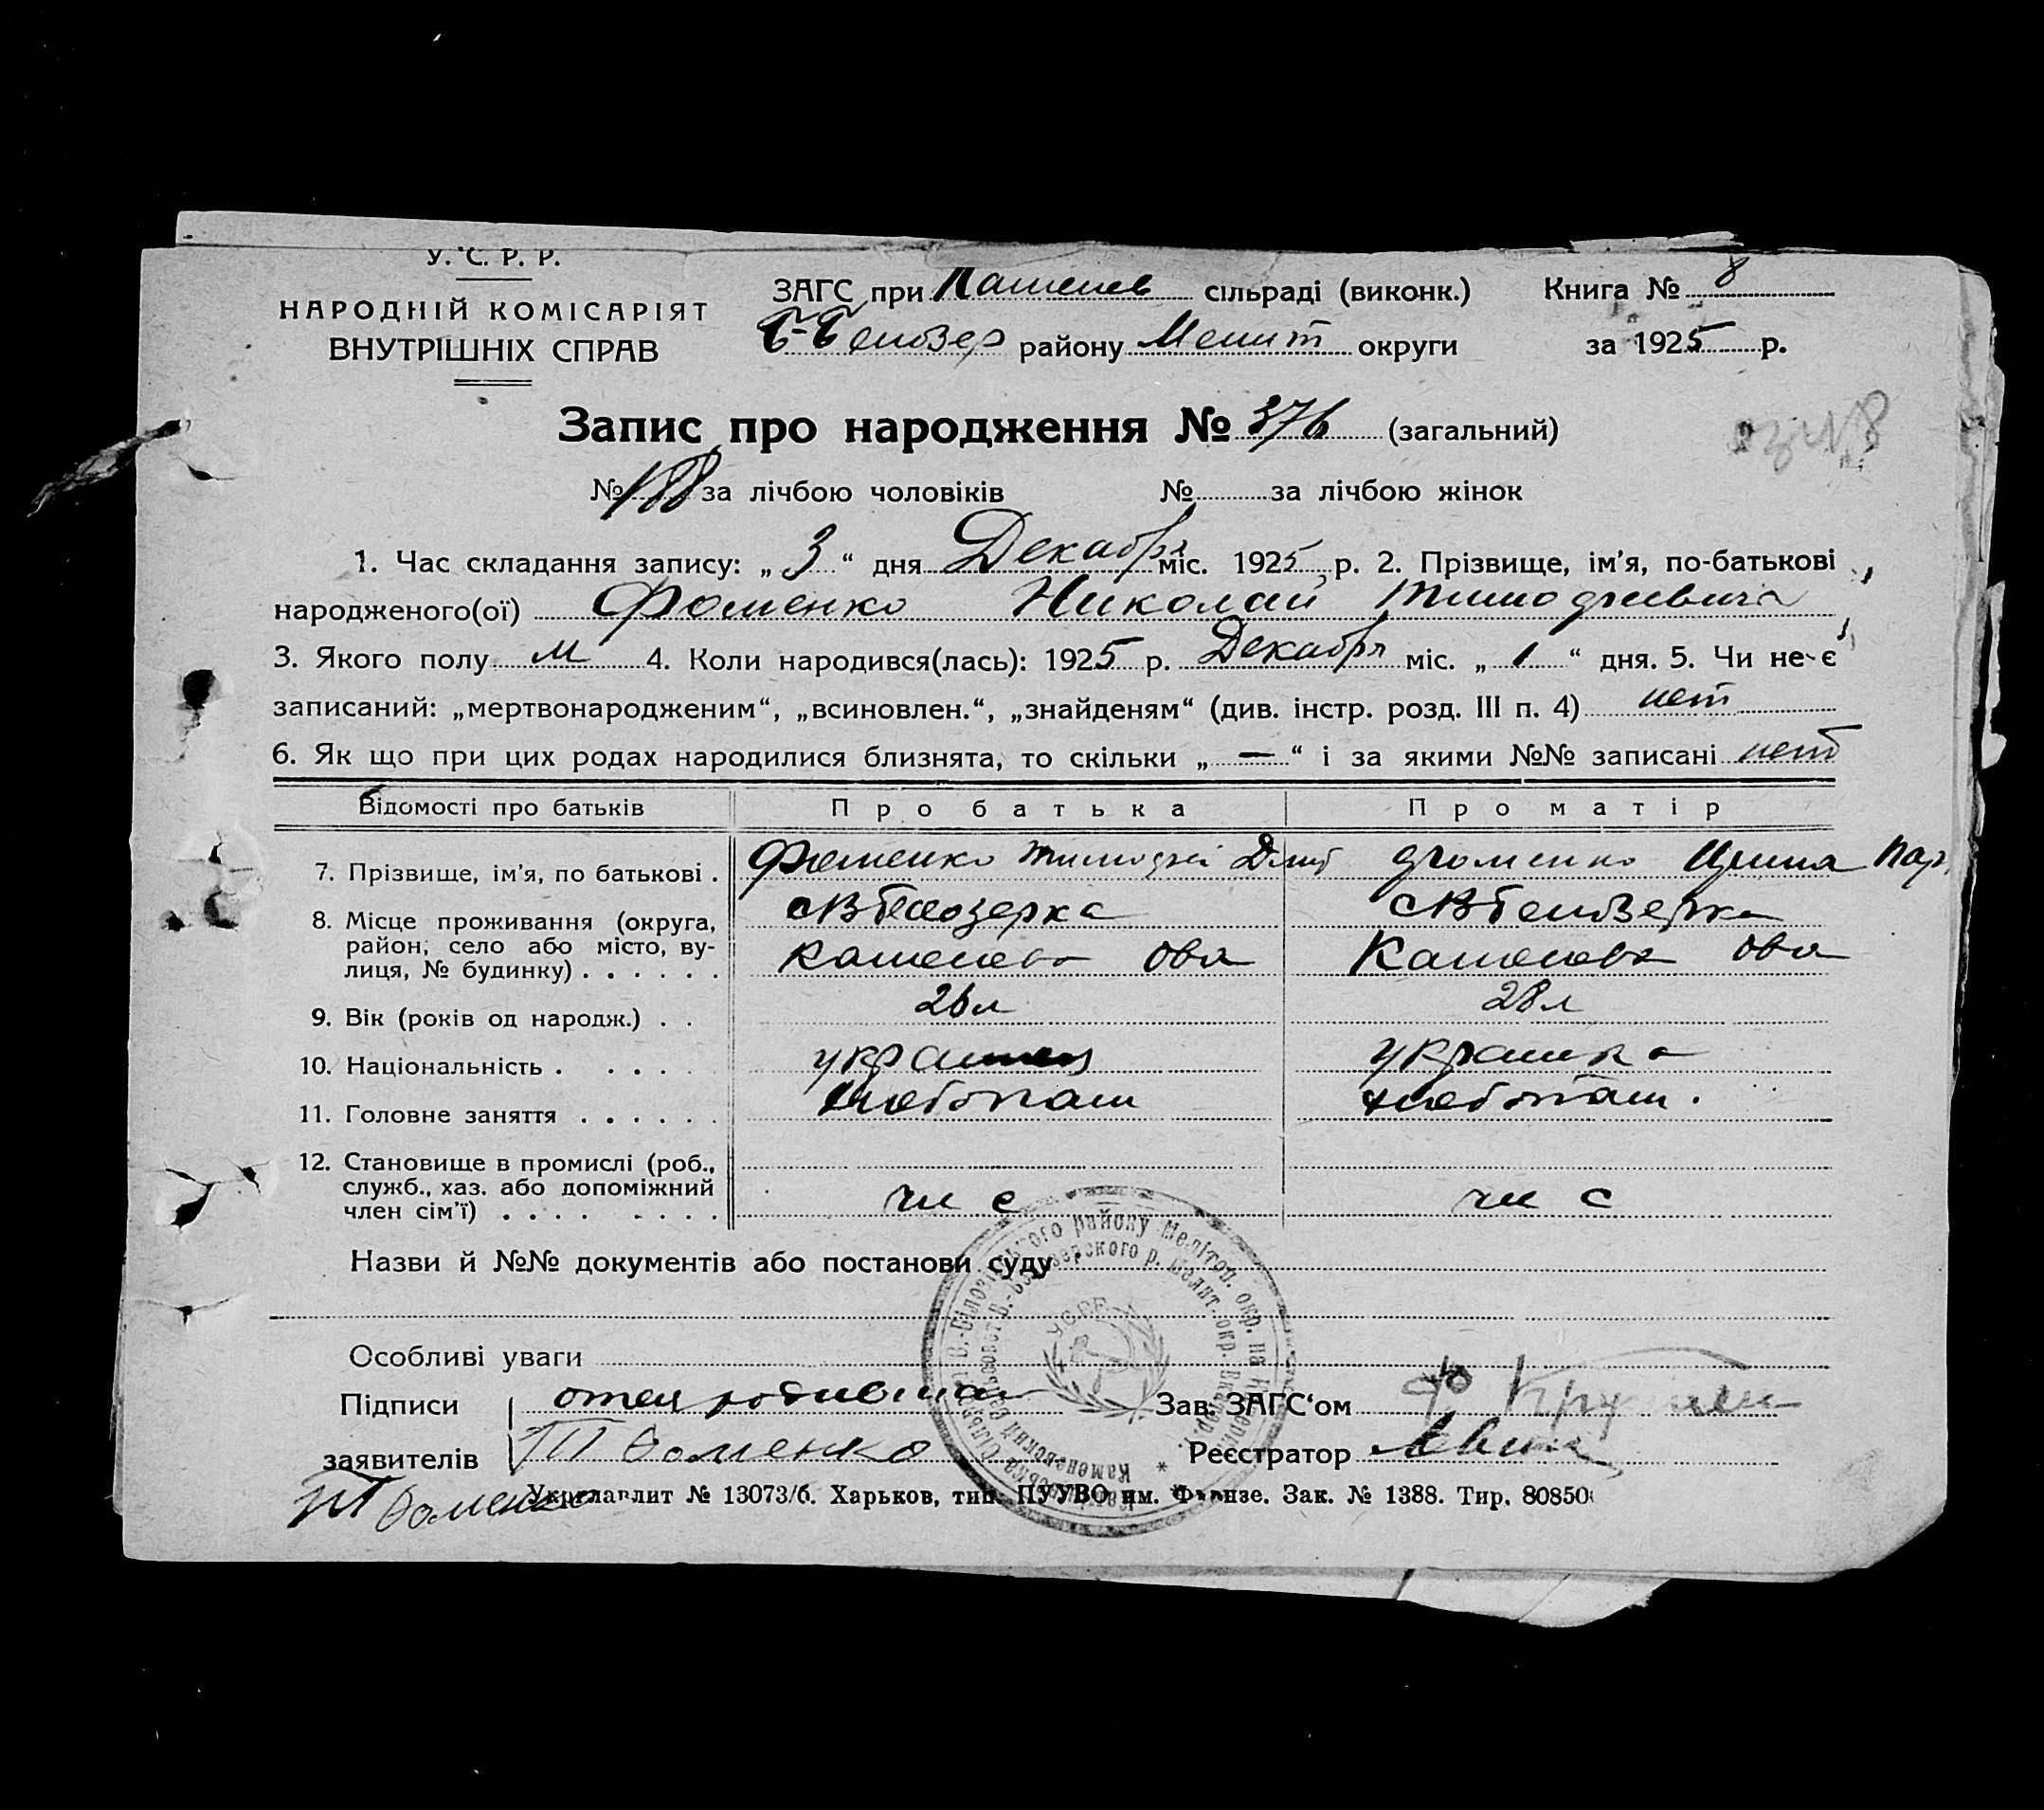 У. С. Р. Р.
НАРОДНІЙ КОМІСАРІЯТ
ВНУТРІШНІХ СПРАВ
ЗАГС при Каменев сільраді (виконк.) Книга № 8
В-Белозер району Мелит округи за 1925 р.
Запис про народження № 376 (загальний)
№ 188 за лічбою чоловіків № за лічбою жінок
1. Час складання запису: „ 3 “ дня Декабря міс. 1925 р. 2. Прізвище, ім'я, по-батькові
народженого(ої) Фоменко Николай Тимофеевича
3. Якого полу м 4. Коли народився(лась): 1925 р. Декабря міс. „ 1 “ дня. 5. Чи не є
записаний: „мертвонародженим“, „всиновлен.“, „знайденям“ (див. інстр. розд. III п. 4) нет
6. Як що при цих родах народилися близнята, то скільки „ — “ і за якими №№ записані нет
Відомості про батьків Про батька Про матір
7. Прізвище, ім'я, по батькові . Фоменко Тимофей Дмит Фоменко Ирина Кар
8. Місце проживання (округа, сВБелозерка сВБелозерка
район, село або місто, ву-
лиця, № будинку) . . . . . . Каменева Каменева
9. Вік (років од народж.) . . 26л 28л
10. Національність . . . . . украинец украинка
11. Головне заняття . . . . . . хлебопаш хлебопаш.
12. Становище в промислі (роб.,
служб., хаз. або допоміжний
член сім'ї) . . . . . . . . чл с чл с
Назви й №№ документів або постанови суду
Особливі уваги
Підписи отец Зав. ЗАГС‘ом
заявителів Т Фоменко Реєстратор
Т Фоменко
Укрглавлит № 13073/б. Харьков, тип. ПУУВО им. Фрунзе. Зак. № 1388. Тир. 80850
УСРР